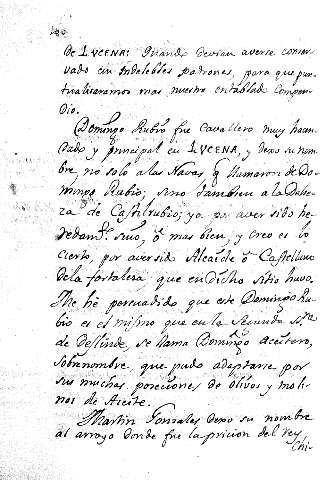 de LUCENA: Quando devian averse conser-
vado en indelebles padrones, para que pun-
tualizaramos mas nuestro entablado Compen-
dio.
Domingo Rubio fue cavallero muy hacen-
dado y principal en LUCENA, y dexo su nom-
bre, no solo a las Navas q llamaron de Do-
mingo Rubio; sino tambien a la Dehe-
za de Castilrubio; ya por aver sido he-
redamto. suio, ò mas bien, y creo es lo
cierto, por aversido Alcaide ò Castellano
de la fortaleza que en Dicho sitio huvo.
Me hè persuadido que este Domingo Ru-
bio es el mismo que en la Segunda
de deslinde, se llama Domingo Aceitero,
sobrenombre, que pudo adaptarse por
sus muchas posesiones de olivos y moli-
nos de Aceite.
Martin Gonzales dexo su nombre
al arroyo donde fue la pricion del rey
Chi-